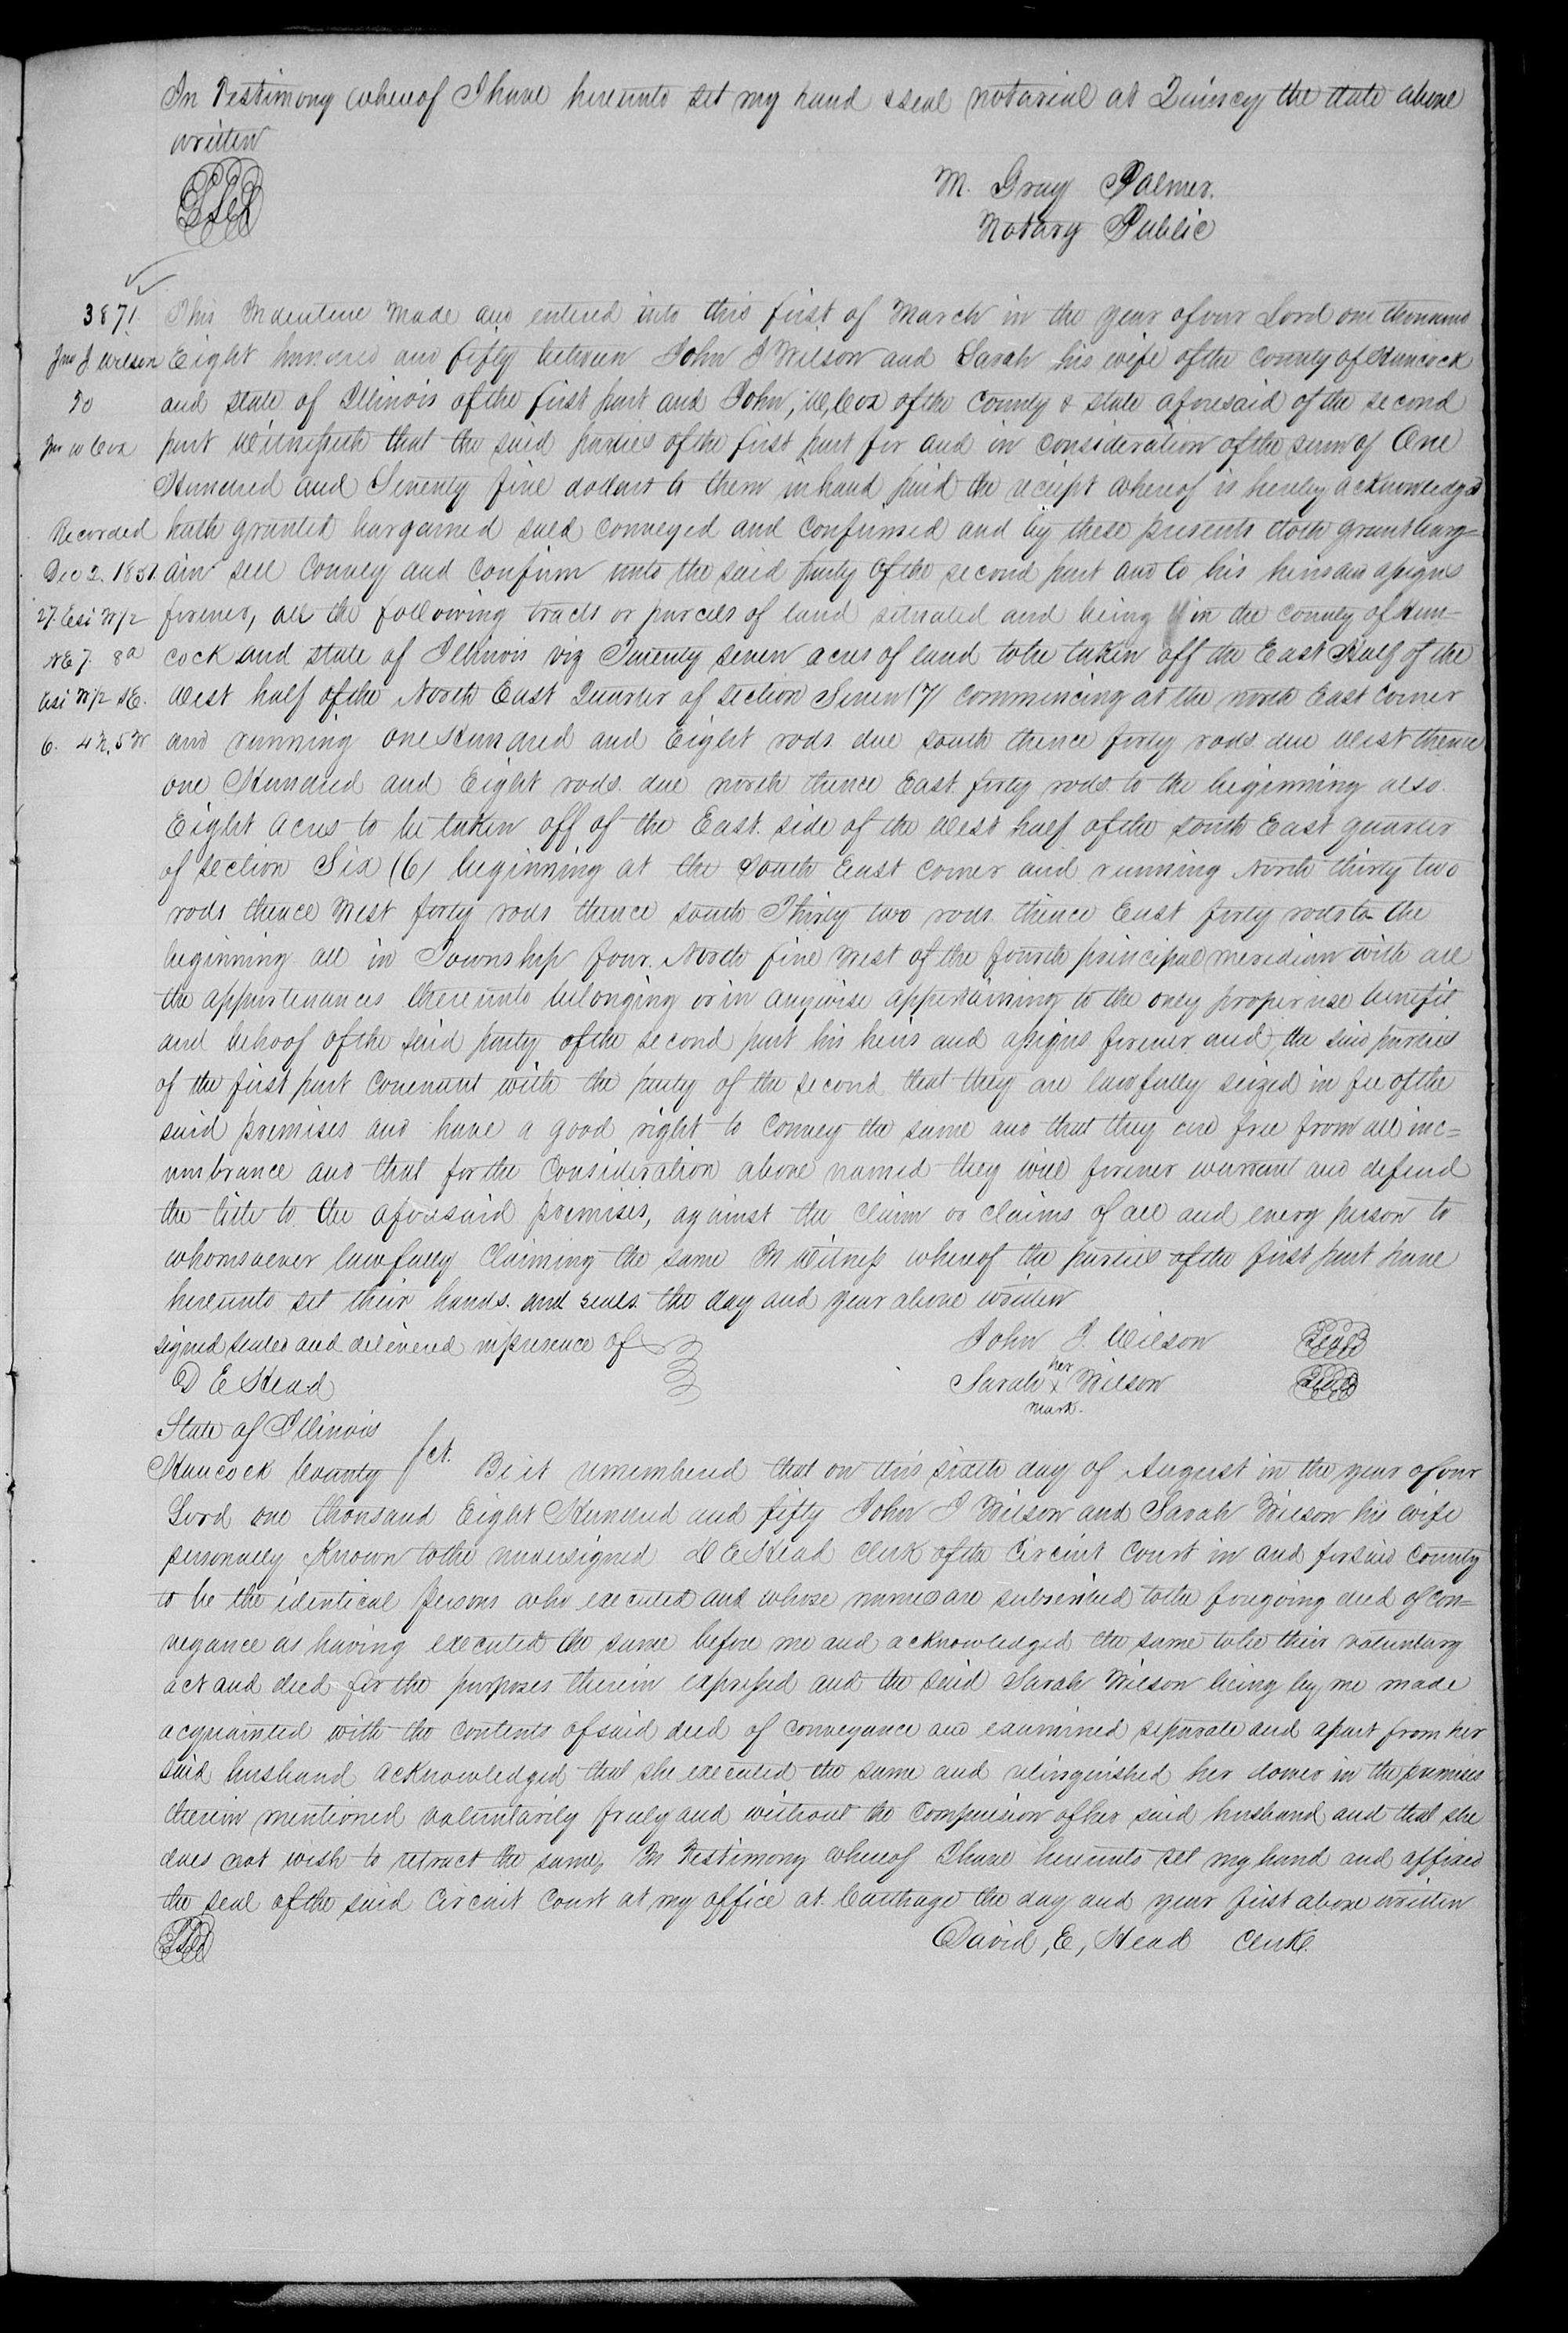 In Testimony whereof I have hereunto set my hand & seal notarial at Quincy the date above
written
Seal
M. Gray Palmer.
Notary Public
3871.
Jno J Wilson
To
Jno W Cox
Recorded
Dec 2. 1851.
27. Esi W/2
NE 7. 8a
Esi W/2 SE.
6. 4N. 5W
This Indenture made and entered into this first of March in the year of our Lord one thousand
Eight hundred and fifty between John J Wilson and Sarah his wife of the County of Hancock
and state of Illinois of the first part and John, W, Cox of the County & state aforesaid of the second
part Witnesseth that the said parties of the first part for and in consideration of the sum of One
Hundred and Seventy five dollars to them in hand paid the receipt whereof is hereby acknowledged
hath granted bargained sold conveyed and confirmed and by these presents doth grant barg-
ain sell Convey and Confirm unto the said party of the second part and to his heirs and assigns
forever, all the following tracts or parcels of land situated and being in the county of Han-
cock and state of Illinois viz Twenty seven acres of land to be taken off the East Half of the
West half of the North East Quarter of section Seven (7) commencing at the north East corner
and running one Hundred and Eight rods due south thence forty rods due West thence
one Hundred and Eight rods. due north thence East forty rods to the beginning also.
Eight acres to be taken off of the East. side of the West half of the south East quarter
of section Six (6) beginning at the South East corner and running North thirty two
rods thence West forty rods thence south Thirty two rods thence East forty rods to the
beginning all in Township four. North five West of the fourth principal meridian with all
the appurtenances thereunto belonging or in anywise appertaining to the only proper use benefit
and behoof of the said party of the second part his heirs and assigns forever and the said parties
of the first part Covenant with the party of the second that they are lawfully seized in fee of the
said premises and have a good right to convey the same and that they are free from all inc=
umbrance and that for the Consideration above named they will forever warrant and defend
the title to the aforesaid premises, against the claim or claims of all and every person to
whomsoever lawfully Claiming the same In Witness whereof the parties of the first part have
hereunto set their hands. and seals. the day and year above written
signed sealed and delivered in presence of
D E Head
John J. Wilson Seal
Sarah her x mark. Wilson Seal
State of Illinois
Hancock County Sct. Be it remembered that on this sixth day of August in the year of our
Lord one thousand Eight Hundred and fifty John J Wilson and Sarah Wilson his wife
personally Known to the undersigned D E Head Clerk of the Circuit Court in and for said County
to be the identical persons who executed and whose names are subscribed to the foregoing deed of con=
veyance as having executed the same before me and acknowledged the same to be their voluntary
act and deed for the purposes therein expressed and the said Sarah Wilson being by me made
acquainted with the contents of said deed of conveyance and examined separate and apart from her
said husband acknowledged that she executed the same and relinquished her dower in the premises
therein mentioned voluntarily freely and without the compulsion of her said husband and that she
does not wish to retract the same, In Testimony whereof I have hereunto set my hand and affixed
the seal of the said Circuit Court at my office at Carthage the day and year first above written
Seal
David, E, Head Clerk.